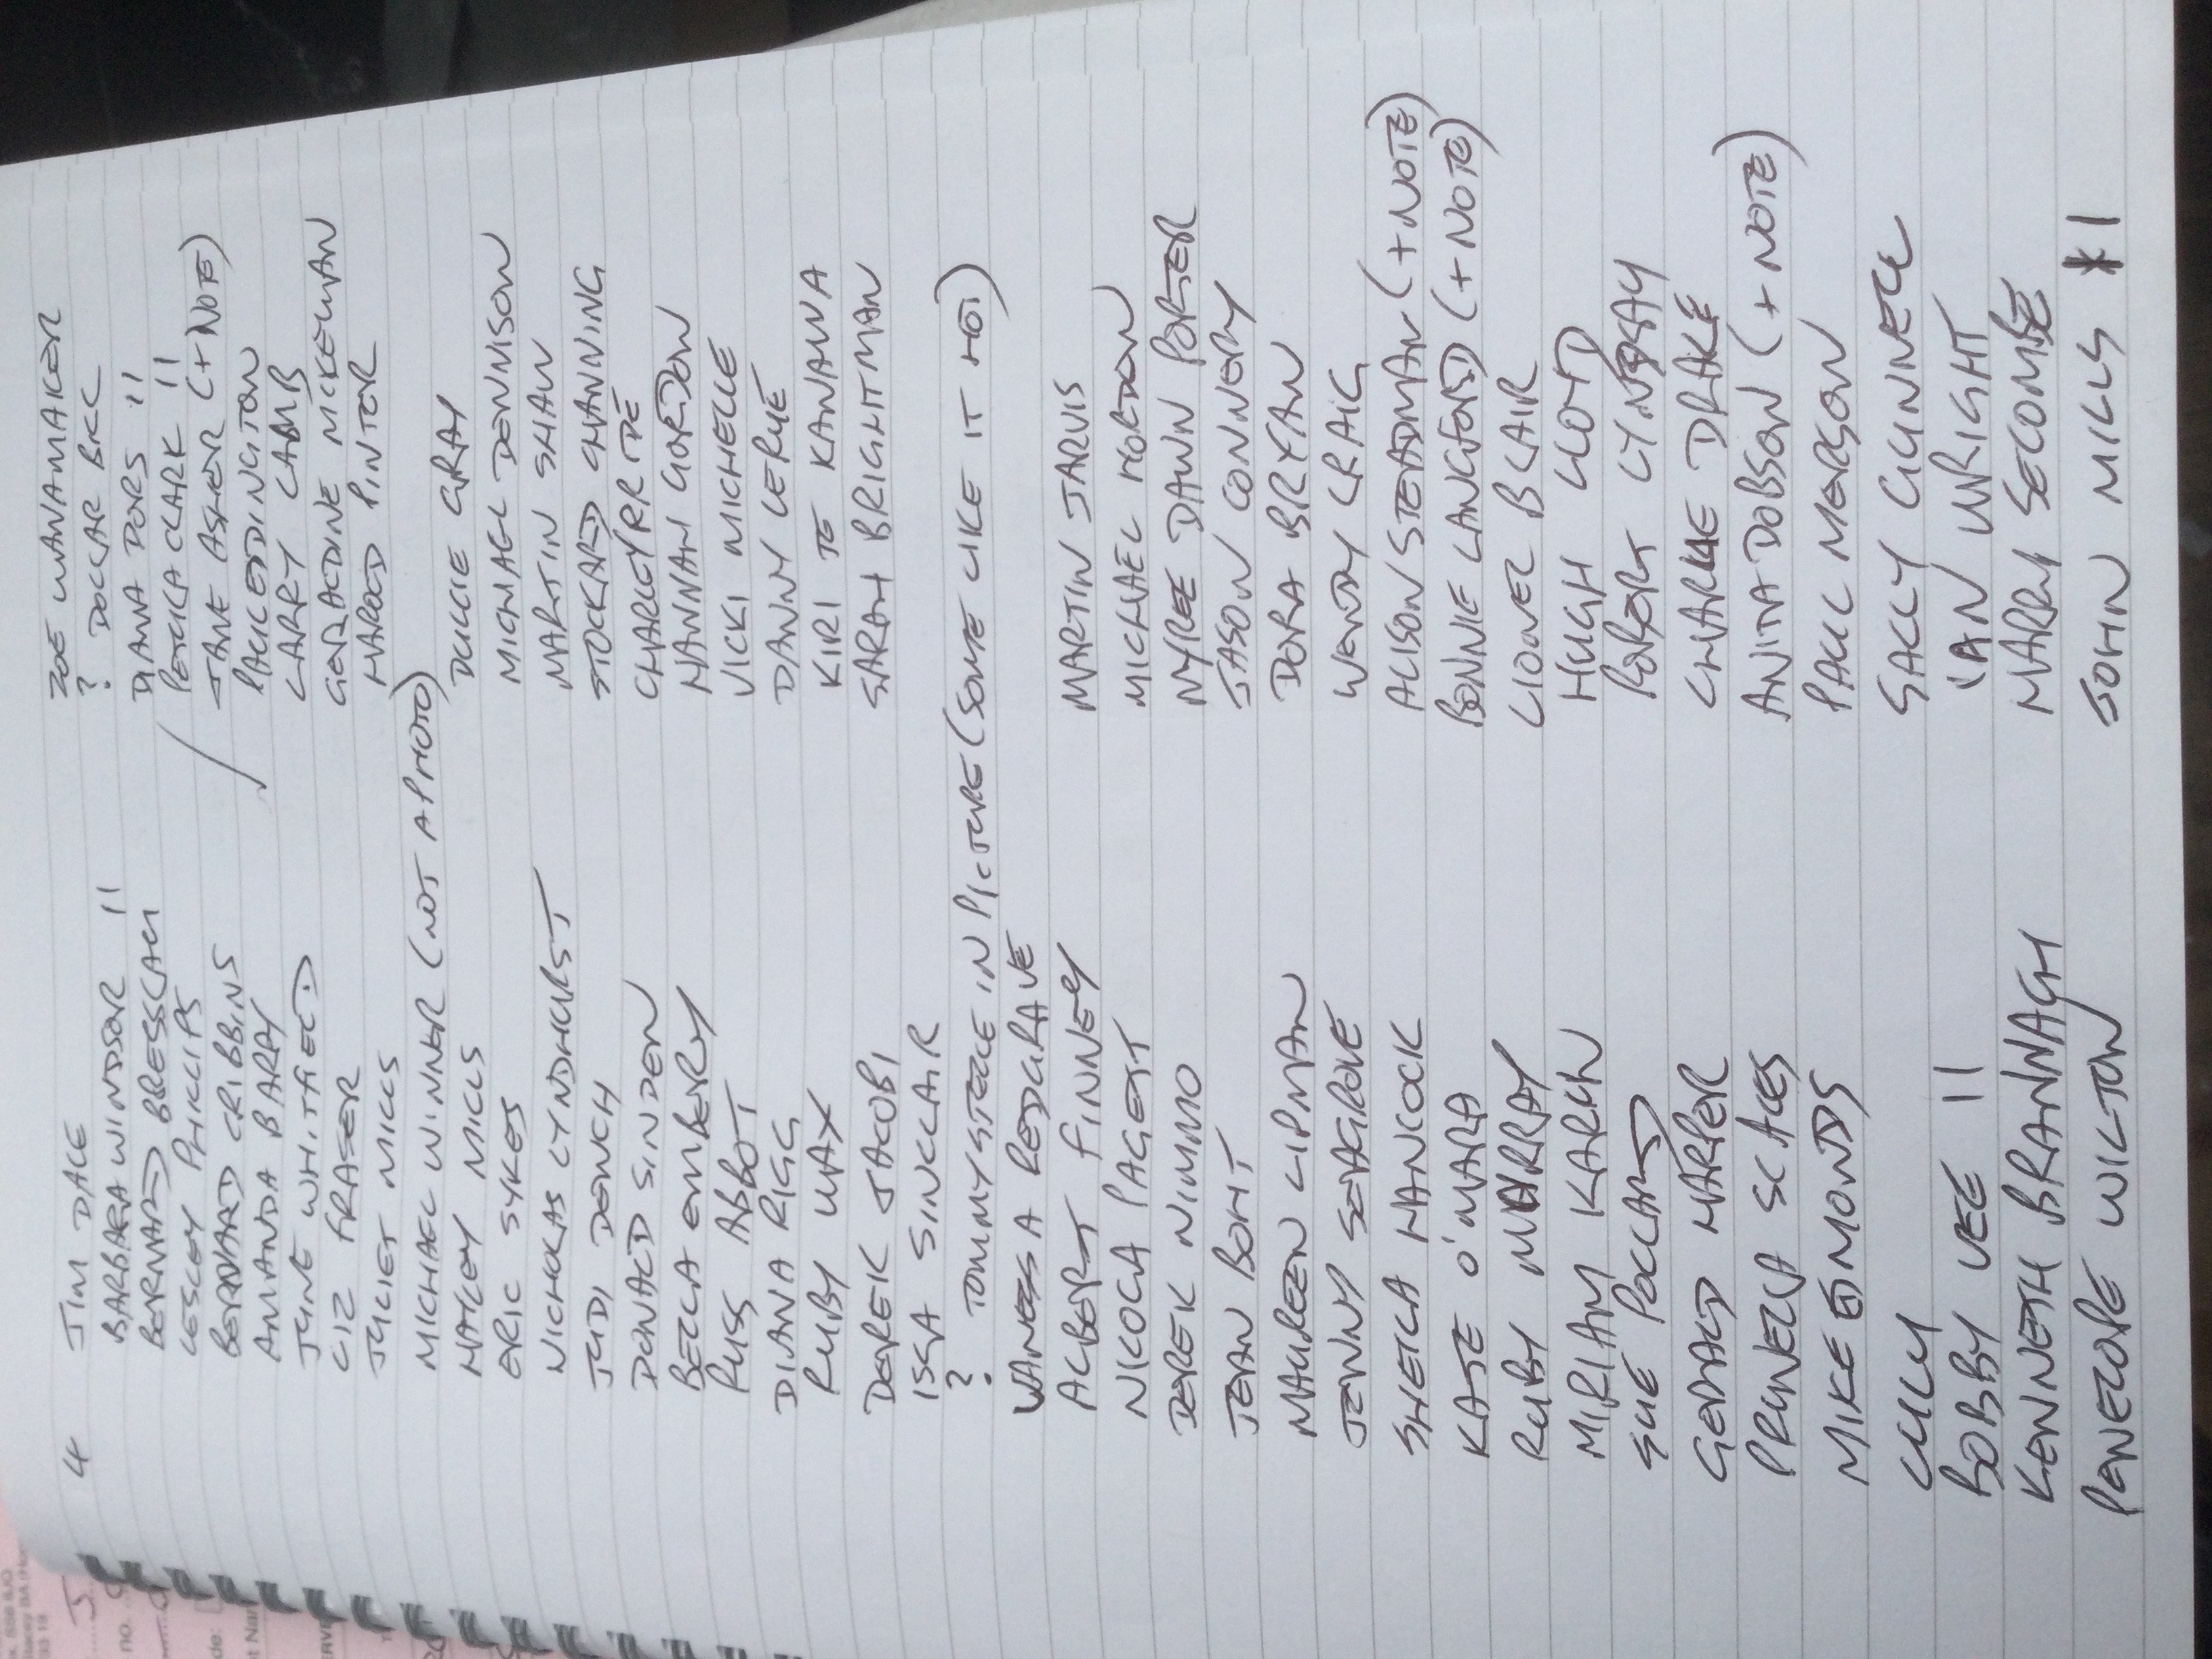 4
JIM DALE
BARBARA WINDSOR 11
BERNARD BRESSLAW
LESLEY PHILLIPS
BERNARD CRIBBINS
AMANDA BARRY
JUNE WHITFIELD
LIZ FRASER
JULIET MILLS
MICHAEL WINNER (NOT A PHOTO)
HAYLEY MILLS
ERIC SYKES
NICHOLAS LYNDHURST
JUDI DENCH
DONALD SINDEN
BELLA EMBERY
RUSS ABBOT
DIANA RIGG
RUBY WAX
DEREK JACOBI
ISLA SINCLAIR
? TOMMY STEELE IN PICTURE (SOME LIKE IT HOT)
VANESSA REDGRAVE
ALBERT FINNEY
NICOLA PAGETT
DEREK NIMMO
JEAN BOHT
MAUREEN LIPMAN
JENNY SEAGROVE
SHEILA HANCOCK
KATE O'MARA
RUBY MURRAY
MIRIAM KARLIN
SUE POLLARD
GERALD HARPER
PRUNELLA SCALES
MIKE EDMONDS
LULU
BOBBY VEE 11
KENNETH BRANNAGH
PENELOPE WILTON
ZOE WANAMAKER
? DOLLAR BILL
DIANA DORS 11
PETULA CLARK 11
JANE ASHER (+NOTE)
PAUL EDDINGTON
LARRY LAMB
GERALDINE MCKEWAN
HAROLD PINTER
DULCIE GRAY
MICHAEL DENNISON
MARTIN SHAW
STOCKARD CHANNING
CHARLEY RITE
HANNAH GORDON
VICKI MICHELLE
DANNY LERUE
KIRI TE KANAWA
SARAH BRIGHTMAN
MARTIN JARVIS
MICHAEL HORDON
NYREE DAWN PORTER
JASON CONNERY
DORA BRYAN
WENDY CRAIG
ALISON STEADMAN (+NOTE)
BONNIE LANGFORD (+NOTE)
LIONEL BLAIR
HUGH LLOYD
ROBERT LYNDSAY
CHARLIE DRAKE
ANITA DOBSON (+NOTE)
PAUL MERSON
SALLY GUNNELL
IAN WRIGHT
HARRY SECOMBE
JOHN MILLS * 1